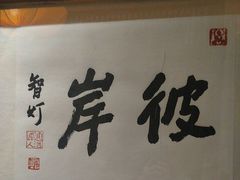 彼岸
智灯